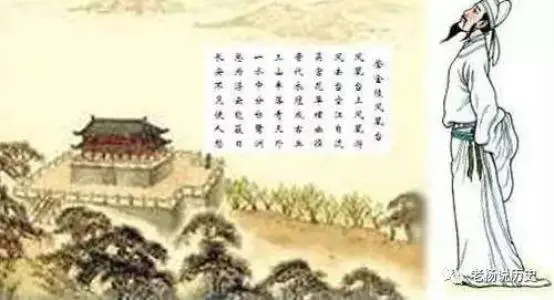 登金陵凤凰台
凤凰台上凤凰游
凤去台空江自流
吴宫花草埋幽径
晋代衣冠成古丘
三山半落青天外
一水中分白鹭洲
总为浮云能蔽日
长安不见使人愁
老杨说历史